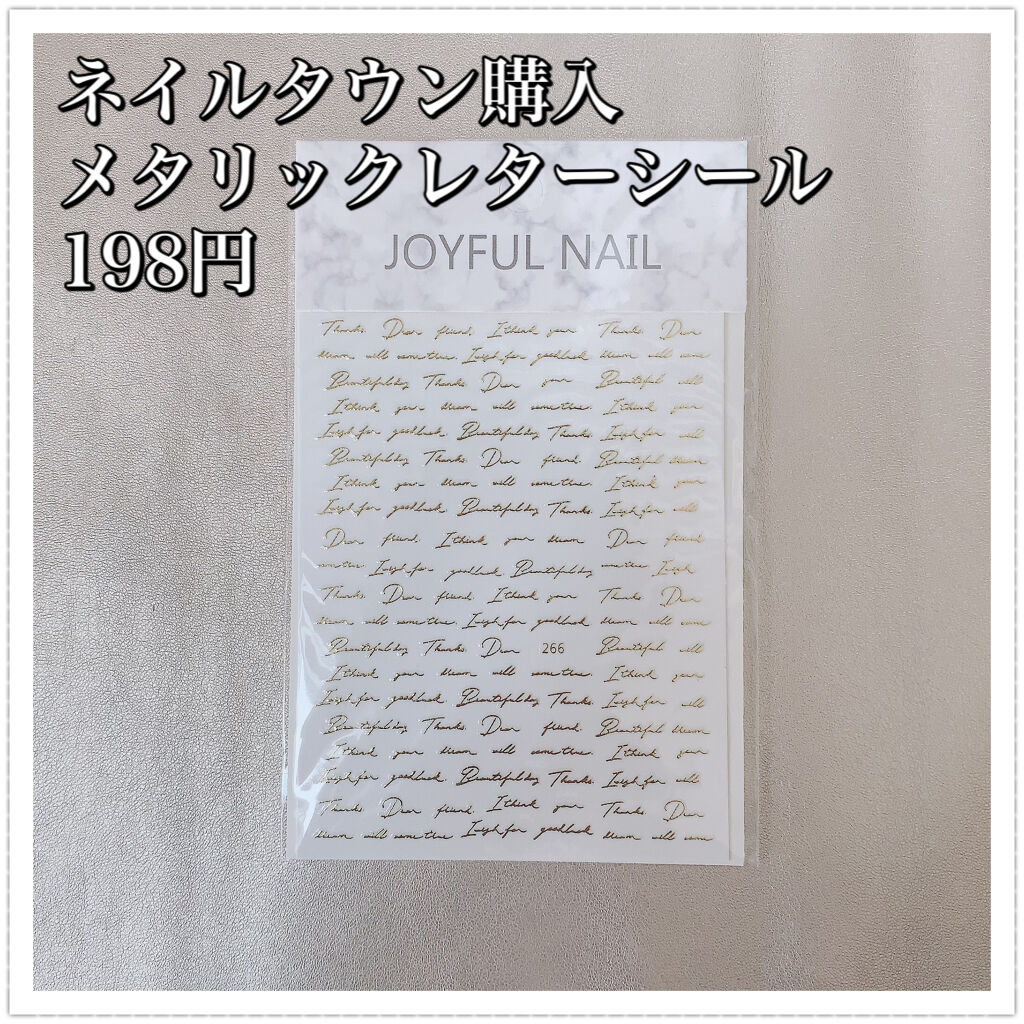 ネイルタウン購入
メタリックレターシール
198円
JOYFUL NAIL
Thanks. Dear friend. I think your Thanks. Dear
dream will come true. I wish for good luck dream will come
Beautiful day Thanks. Dear your Beautiful will
I think your dream will come true. I think your
I wish for good luck. Beautiful day Thanks. I wish for will
Beautiful day Thanks. Dear friend. Beautiful dream
I think your dream will come true. I think your
I wish for good luck. Beautiful day Thanks. I wish for will
Dear friend. I think your dream Dear friend
come true. I wish for good luck. Beautiful day come true. I wish
Thanks. Dear friend. I think your Thanks. Dear
dream will come true. I wish for good luck dream will come
Beautiful day Thanks. Dear 266 Beautiful will
I think your dream will come true. I think your
I wish for good luck. Beautiful day Thanks. I wish for will
Beautiful day Thanks. Dear friend. Beautiful dream
I think your dream will come true. I think your
I wish for good luck. Beautiful day Thanks. I wish for will
Thanks. Dear friend. I think your Thanks. Dear
dream will come true. I wish for good luck dream will come